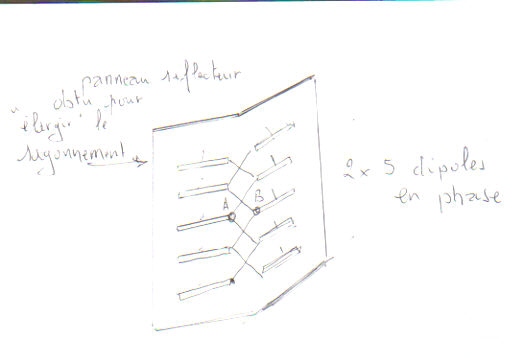 panneau réflecteur
obtu pour
"élargir" le
rayonnement
A
B
2x5 dipoles
en phase